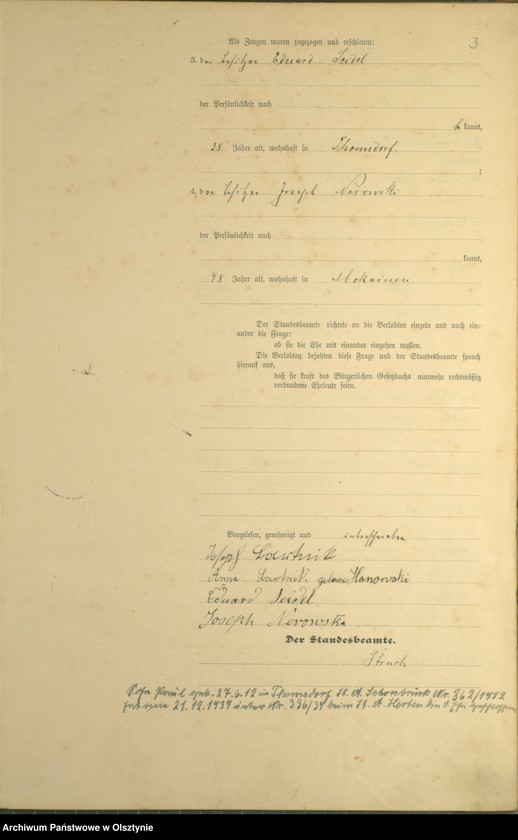 3
Als Zeugen waren zugezogen und erschienen:
3. der Besitzer Eduard Seidel
der Persönlichkeit nach
be kannt,
28 Jahre alt, wohnhaft in Thomsdorf
;
4. der Besitzer Joseph Nerowski
der Persönlichkeit nach
kannt,
48 Jahre alt, wohnhaft in Mokainen
Der Standesbeamte richtete an die Verlobten einzeln und nach ein-
ander die Frage:
ob sie die Ehe mit einander eingehen wollen.
Die Verlobten bejahten diese Frage und der Standesbeamte sprach
hierauf aus,
daß sie kraft des Bürgerlichen Gesetzbuchs nunmehr rechtmäßig
verbundene Eheleute seien.
Vorgelesen, genehmigt und unterschrieben
Joseph
Anna geborene
Eduard Seidel
Joseph Nerowski
Der Standesbeamte.
Sohn geb. 27.6.12 in Thomsdorf St. A. Schönbrück Nr. 362/1912
21.12.1934 unter Nr. 336/34 beim St. A.
Archiwum Państwowe w Olsztynie